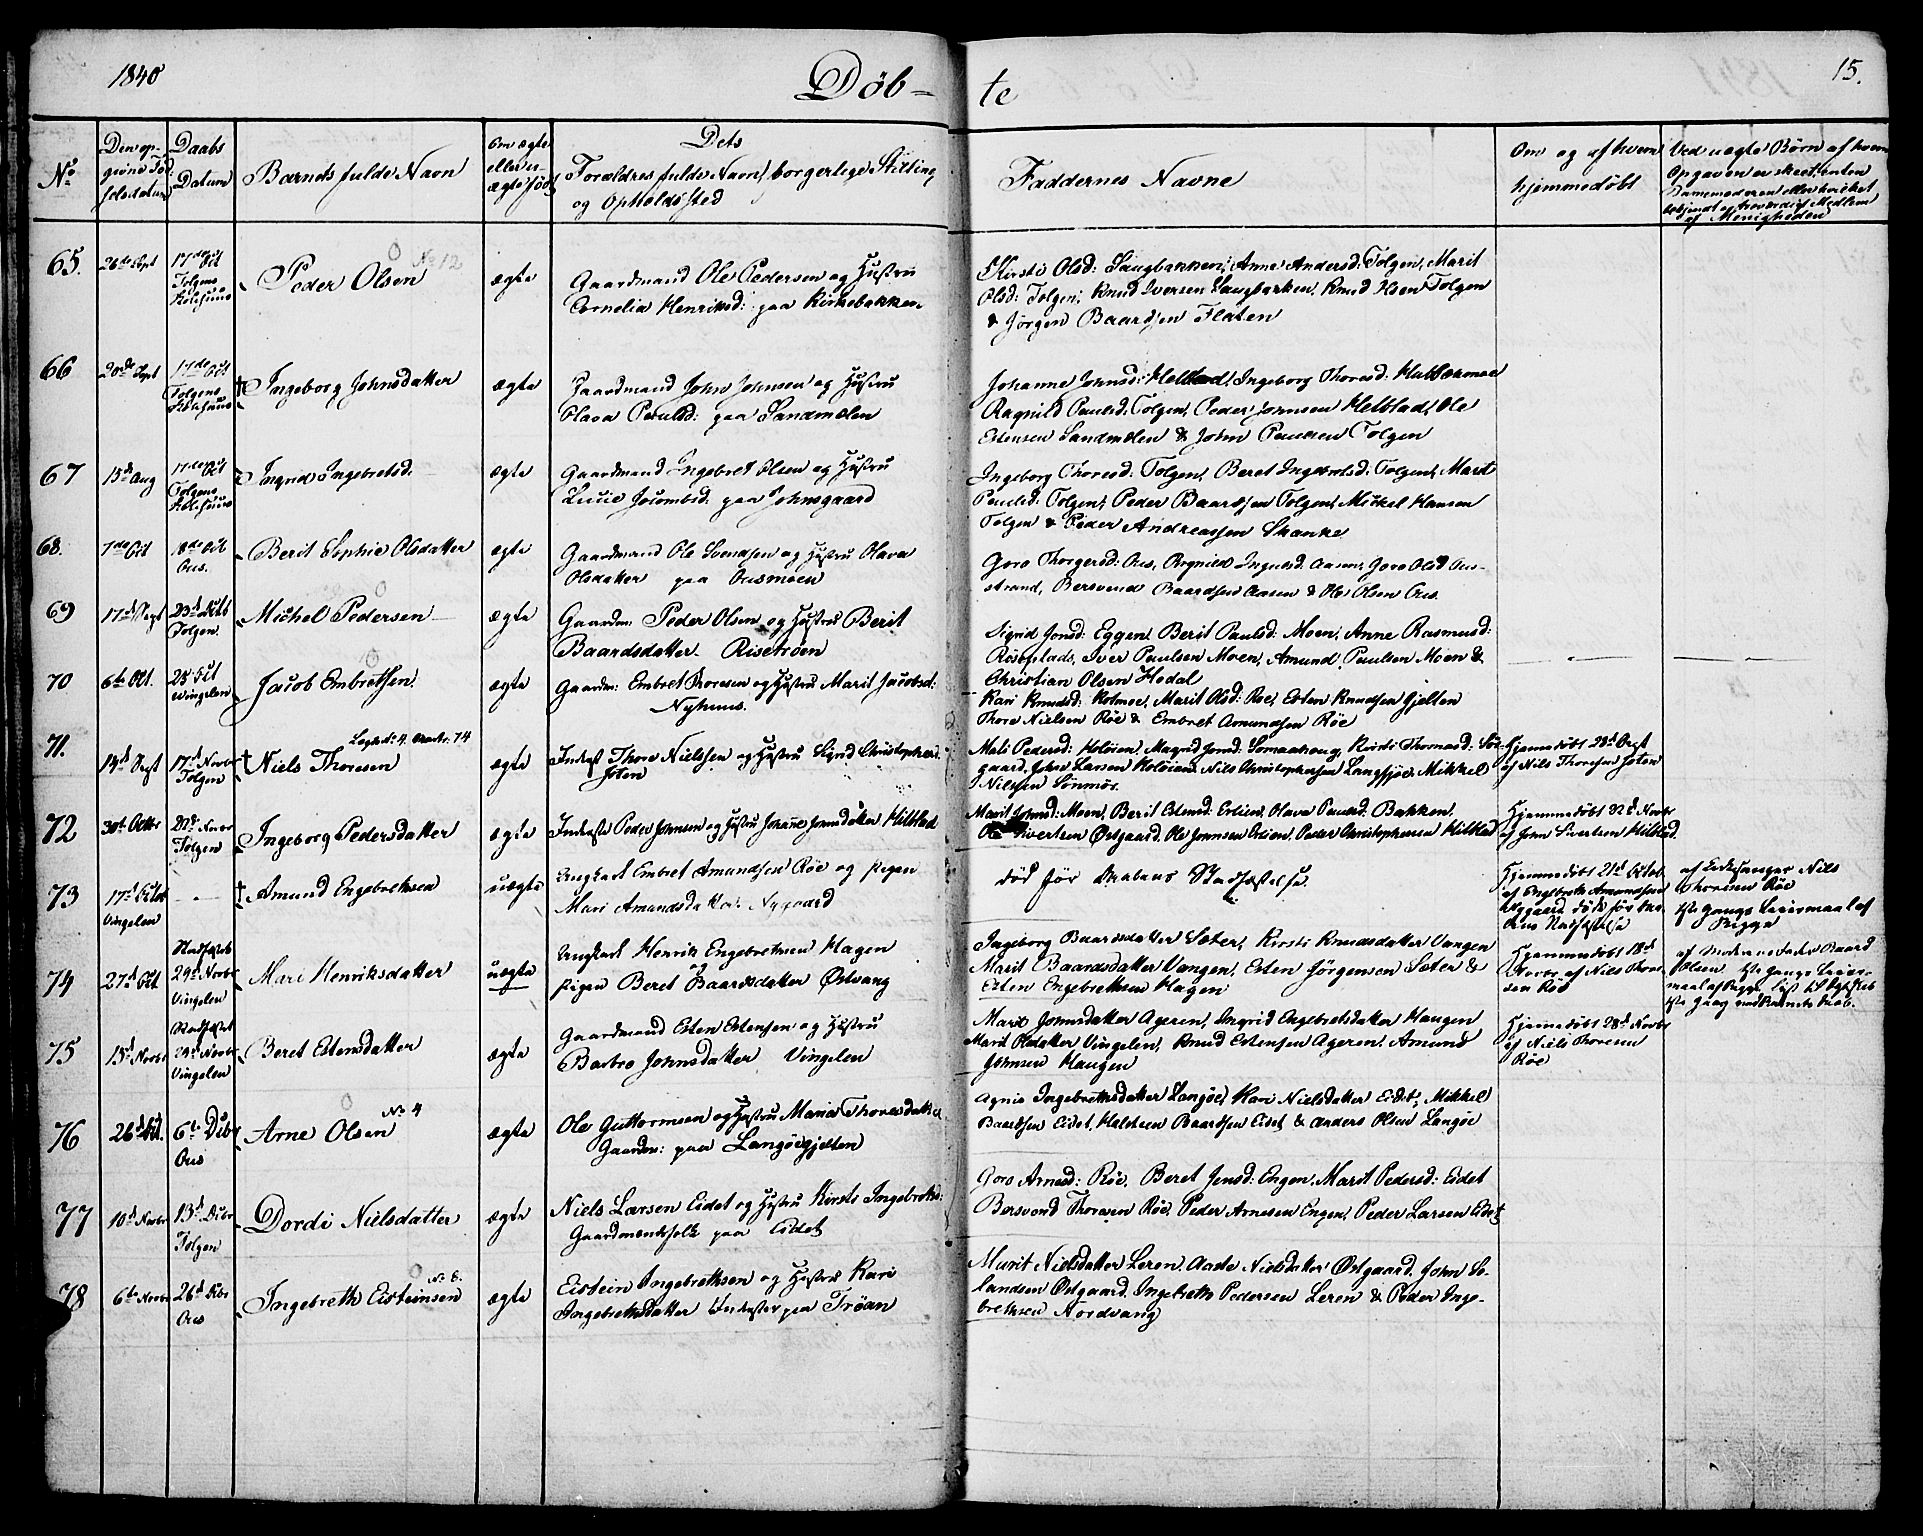 1840
Döb-
te
15.
No
Den op-
givne Fö-
selsdatum
Daabs
Datum
Barnets fulde Navn
Om ægte
eller u-
ægte född
Dets
Forældres fulde Navn, borgerlige Stilling
og Opholdssted
Faddernes Navne
Om og af hvem
hjemmedöbt
Ved uægte Börn af hvem
Opgaven er skeet, enten
af Menigheden
65.
26de Sept
17de Oct
Tolgens
No 12
Peder Olsen
ægte
Gaardmand Ole Pedersen og Hustru
Cornelia Henriksd: paa Kirkebakken
Kirsti Olsd: Saugbakken, Anne Andersd: Tolgen, Marit
Olsd: Tolgen, Knud Iversen Saugbakken, Knud Olsen Tolgen
& Jörgen Baardsen Flaten
66
20de Sept
17de Oct
Tolgens
† Ingeborg Johnsdatter
ægte
Gaardmand John Johnsen og Hustru
Olava Paulsd: paa Sandmælen
Johanne Johnsd: Helstad, Ingeborg Thoresd:
Ragnild Paulsd: Tolgen, Peder Johnsen Helstad, Ole
Estensen Sandmælen & John Paulsen Tolgen
67
15de Aug
17de Oct
Tolgens
Ingrid Ingebretsd:
ægte
Gaardmand Ingebret Olsen og Hustru
Lucie Jacobsd: paa Johnsgaard
Ingeborg Thoresd: Tolgen, Beret Ingebretsd: Tolgen, Marit
Paulsd: Tolgen, Peder Baardsen Tolgen, Mickel Hansen
Tolgen & Peder Andreassen Skanke
68.
7de Oct
18de Oct
Ous.
Berit Sophie Olsdatter
ægte
Gaardmand Ole Svendsen og Hustru Olava
Olsdatter paa Ousmoen
Goro Thorgersd: Ous, Ragnild Ingulsd: Aasen, Goro Olsd: Ous-
strand, Bersvend Baardsen Aasen & Ole Olsen Ous.
69
17de Sept
23d Octb
Tolgen
Michel Pedersen
ægte
Gaardm: Peder Olsen og Hustru Berit
Baardsdatter Risetröen
Sigrid Jonsd: Eggen, Berit Paulsd: Moen, Anne Rasmusd:
Iver Paulsen Moen, Amund Paulsen Moen &
Christian Olsen Hodal
70
6te Oct.
25 Oct
Vingelen
Jacob Embretsen
ægte
Gaardm: Embret Thoresen og Hustru Marit Jacobsd:
Nyhuus.
Kari Knudsd: Holmoe, Marit Olsd: Röe, Esten Knudsen Gjelten
Thore Nielsen Röe & Embret Amundsen Röe
71.
17d Novbr
Tolgen
† Niels Thoresen
ægte
Inderst Thore Nielsen og Hustru Sigrid Christophersd:
Mali Pedersd: Holöien, Magnild Jonsd:
gaard, John Larsen Holöien, Nils Christophersen Langsjöe, Mikkel
Nilssen
Hjemmedöbt
af Nils Thoresen
72
30te Octbr
Novbr
Tolgen
Ingeborg Pedersdatter
ægte
Inderste Peder Johnsen og Hustru Johanne Jonsdatter Hilstad
Marit Johnsd: Moen, Berit Estensd: Erlien, Olava Paulsd: Bakken,
Ole Sivertsen Östgaard, Ole Jonsen Erlien, Peder Christophersen Hilstad
Hjemmedöbt Novbr
af John Sivertsen Hilstad
73
17d Octbr
Vingelen
† Amund Engebrethsen
uægte
Ungkarl Embret Amundsen Röe og Pigen
Mari Amundsdatter Nygaard
död för Daabens Stadfæstelse.
Hjemmedöbt 21d Octob
af Engebreth Amundsen
Nygaard döde för
Stadfæstelse
af Kirkesanger Nils
Thoresen Röe
1ste Gangs Leiermaal af
Begge
74
27d Oct
Stadfæstet
29d Novbr
Vingelen
Mari Henriksdatter
uægte
Ungkarl Henrik Engebrethsen Hagen
og
Pigen Beret Baardsdatter Östvang
Ingeborg Baardsdatter Sæter, Kirsti Knudsdatter Vangen
Marit Baardsdatter Vangen, Esten Jörgensen Sæter &
Esten Engebrethsen Hagen
Hjemmedöbt 18d
Novbr af Nils Thore-
sen Röe
af Moderens Fader Baard
Olsen 1ste Gangs Leier-
maal af Begge
75
15d Novbr
Stadfæstet
29d Novbr
Vingelen
Beret Estensdatter
ægte
Gaardmand Esten Estensen og Hustru
Barbro Johnsdatter Vingelen
Marit Johnsdatter Ageren, Ingrid Engebretsdatter Haugen
Marit Olsdatter Vingelen, Knud Estensen Ageren, Amund
Johnsen Haugen
Hjemmedöbt 28d Novbr
af Niels Thoresen
Röe
76
26d Oct.
6te Dcbr
Ous
No 4
Arne Olsen
ægte
Ole Guttormsen og Hustru Maria Thoresdatter
Gaardm: paa Langöegjelten
Agnis Ingebrethsdatter Langöe, Kari Nielsdatter Eidet, Mikkel
Baardsen Eidet, Halvdsen Baardsen Eidet & Anders Olsen Langöe
77
10d Novbr
13d Dcbr
Tolgen
Dordi Nielsdatter
ægte
Niels Larsen Eidet og Hustru Kirsti Ingebrethsd:
Gaardmandsfolk paa Eidet
Goro Arnesd: Röe, Beret Jensd: Engen, Marit Pedersd: Eidet
Bersvend Thoresen Röe, Peder Arnesen Engen, Peder Larsen Eidet
78
6te Novbr
26d Dcbr
Ous
No 8.
Ingebreth Eisteinsen
ægte
Eistein Ingebrethsen og Hustru Kari
Ingebrethsdatter Inderster paa Tröan
Marit Nielsdatter Leren, Aade Nielsdatter Östgaard, John Er-
landsen Östgaard, Ingebreth Pedersen Leren & Peder Inge-
brethsen Nordvang